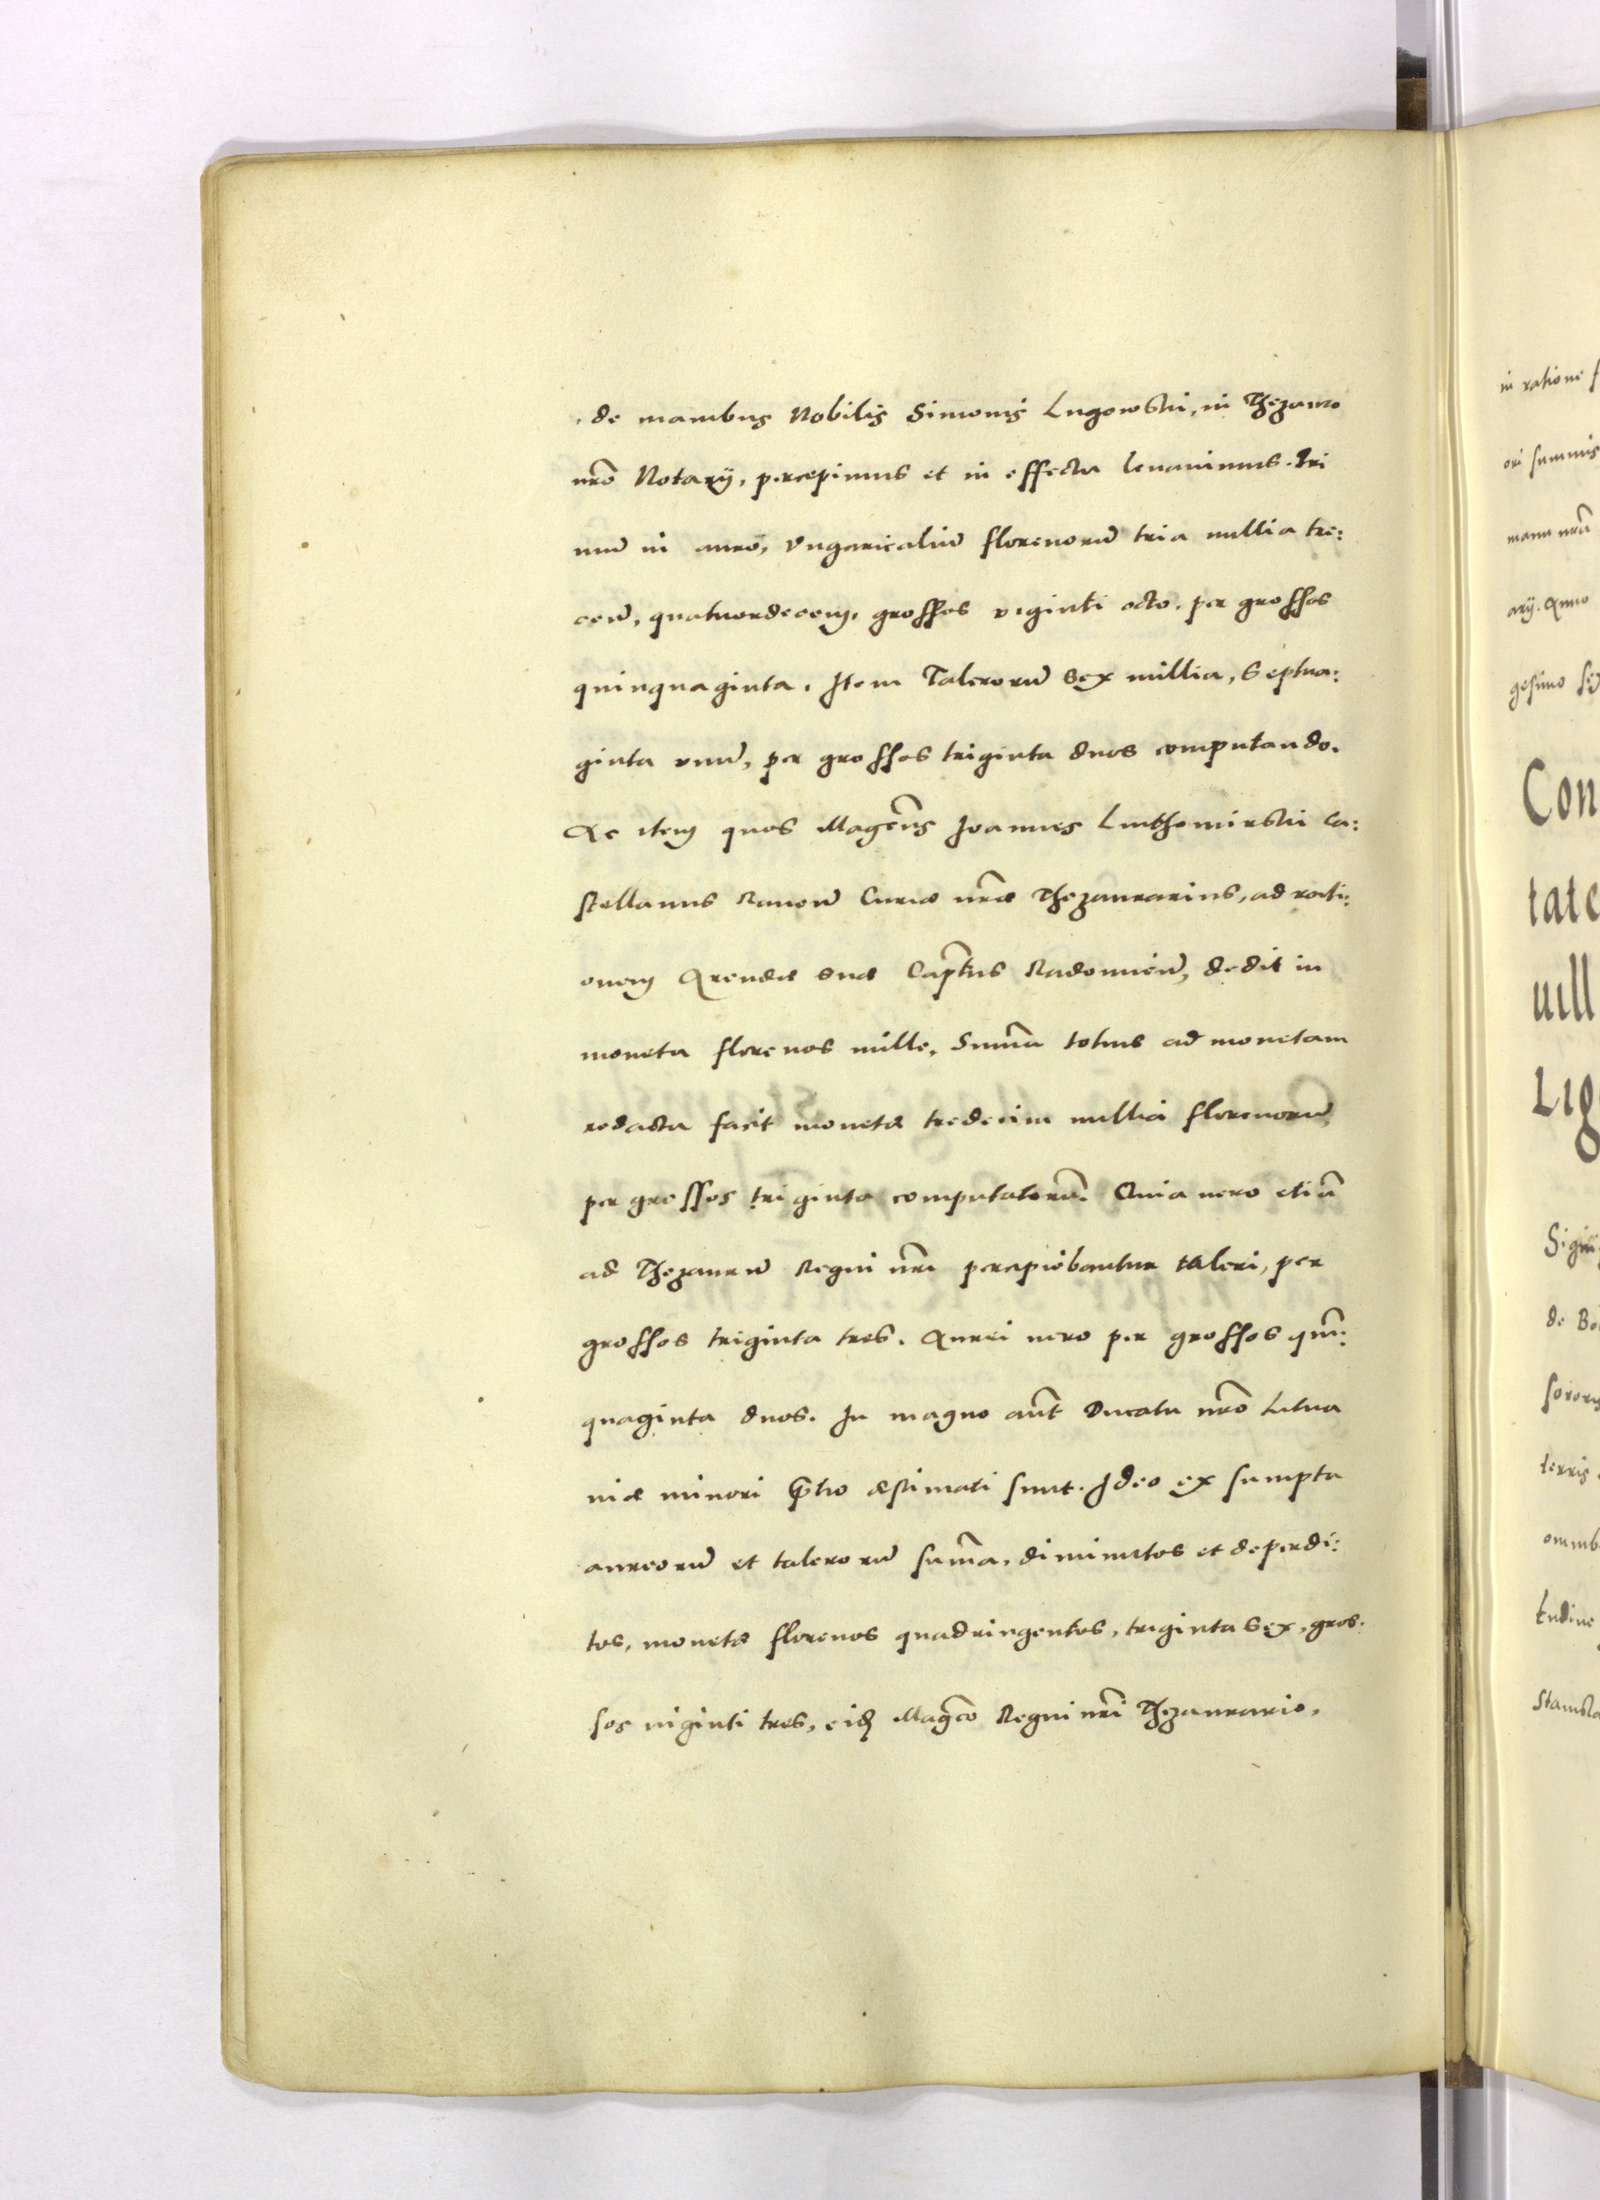 de manibus Nobilis Simonis Lugowski, in Thezauro
nrō Notarij, percepimus et in effectu leuauimus. Pri
mū in auro, Vngaricaliū florenorū tria millia tre:
cen̄, quatuordecem, grossos viginti octo, per grossos
quinquaginta. Item Talerorū sex millia, septua:
ginta vnū, per grossos triginta duos computando.
Ac item quos Magcūs Joannes Luthomirski Ca:
stellanus Rauen̄ Curiæ nr̄æ Thezaurarius, ad rati:
onem Arendæ suæ Capt̄us Radomien̄, dedit in
moneta florenos mille, Sum̄a totius ad monetam
redacta facit monetæ tredecim millia florenorū,
per grossos triginta computatorū. Quia uero etiā
ad Thezaurū Regni nr̄i percipiebantur taleri, per
grossos triginta tres. Aurei uero per grossos quin:
quaginta duos. In magno aūt Ducatu nr̄o Litua
niæ minori p̄tio æstimati sunt. Ideo ex sumpta
aureorū et talerorū sum̄a, diminutos et deperdi:
tos, monetæ florenos quadringentos, triginta sex, gros:
sos uiginti tres, eidē Magco Regni nr̄i Thezaurario,
in ratione
ori summis
manu nrā
arij. Anno
gesimo
Con
tate
uill
Lig
Sigis
de
soror
terris
omnib
tudine
Stanisla